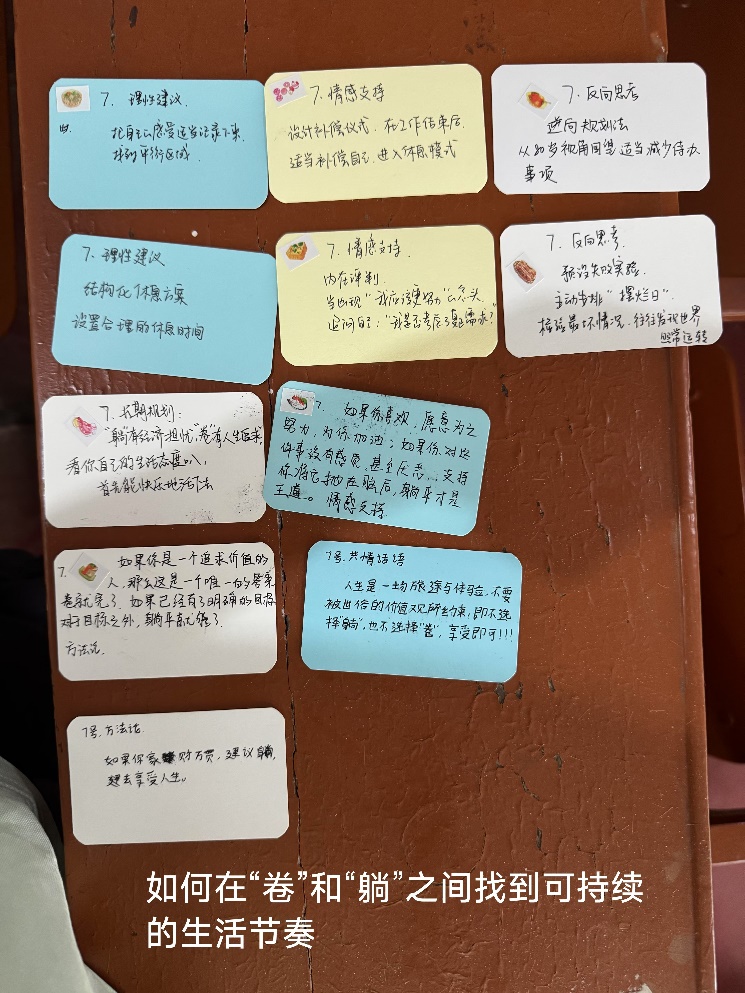 7. 理性建议
把自己感受适当记录下来,
找到平衡区域.
7. 情感支持
设计补偿仪式. 在工作结束后.
适当补偿自己. 进入休息模式
7. 反向思考
逆向规划法
从80岁视角回望 适当减少待办
事项
7. 理性建议
结构化休息方案
设置合理的休息时间
7. 情感支持
内在评判.
当出现“我应该更努力”念头.
追问自己:“我是否考虑了真需求?”
7. 反向思考.
预设失败实验.
主动安排“摆烂日”.
检验最坏情况. 往往发现世界
照常运转
7. 长期规划:
“躺”有经济担忧,“卷”有人生追求,
看你自己的生活态度叭,
首先能快乐地活下去
7. 如果你喜欢, 愿意为之
努力, 为你加油; 如果你对这
件事没有感觉, 甚至厌恶, 支持
你将它抛在脑后, 躺平才是
王道。情感支持
7. 如果你是一个追求价值的
人, 那么这是一个唯一的答案
卷就完了. 如果已经有了明确的目标
对于目标之外, 躺平就够了.
方法论.
7号. 共情话语
人生是一场旅途与体验, 不要
被世俗的价值观所约束, 即不选
择“躺”, 也不选择“卷”, 享受即可!!!
7号. 方法论.
如果你家财万贯, 建议躺,
想去享受人生。
如何在“卷”和“躺”之间找到可持续
的生活节奏